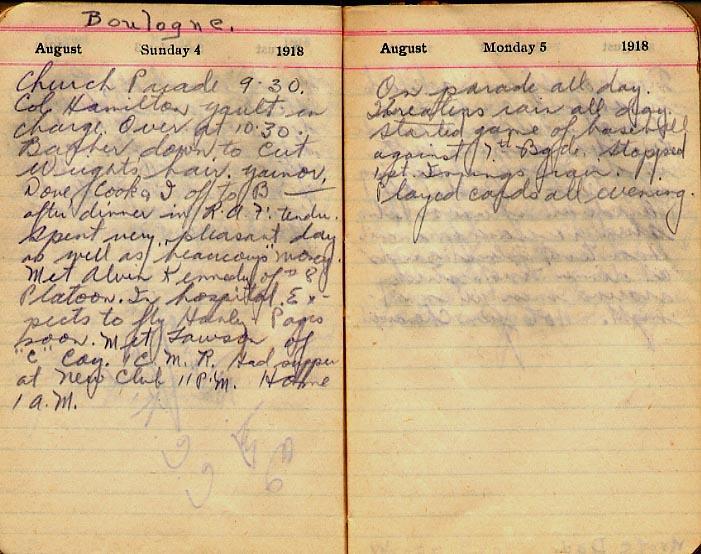 Boulogne.
August Sunday 4 1918
Church Parade 9.30.
Col. Hamilton Gault in
charge. Over at 10.30.
Barber down to cut
Wrights hair. Gainor,
Dove Cook & I off to B——
after dinner in R.A.F. tender.
Spent very pleasant day
as well as "beaucoup" money.
Met Alvin Kennedy of # 8
Platoon. In hospital. Ex-
pects to fly Hanley Pages
soon. Met Lawson of
"C" Coy. 1 C.M.R. Had supper
at New Club 11 P.M. Home
1 A.M.
August Monday 5 1918
On parade all day.
Threatens rain all day.
Started game of baseball
against 7th Bgde. Stopped
1st Innings rain.
Played cards all evening.